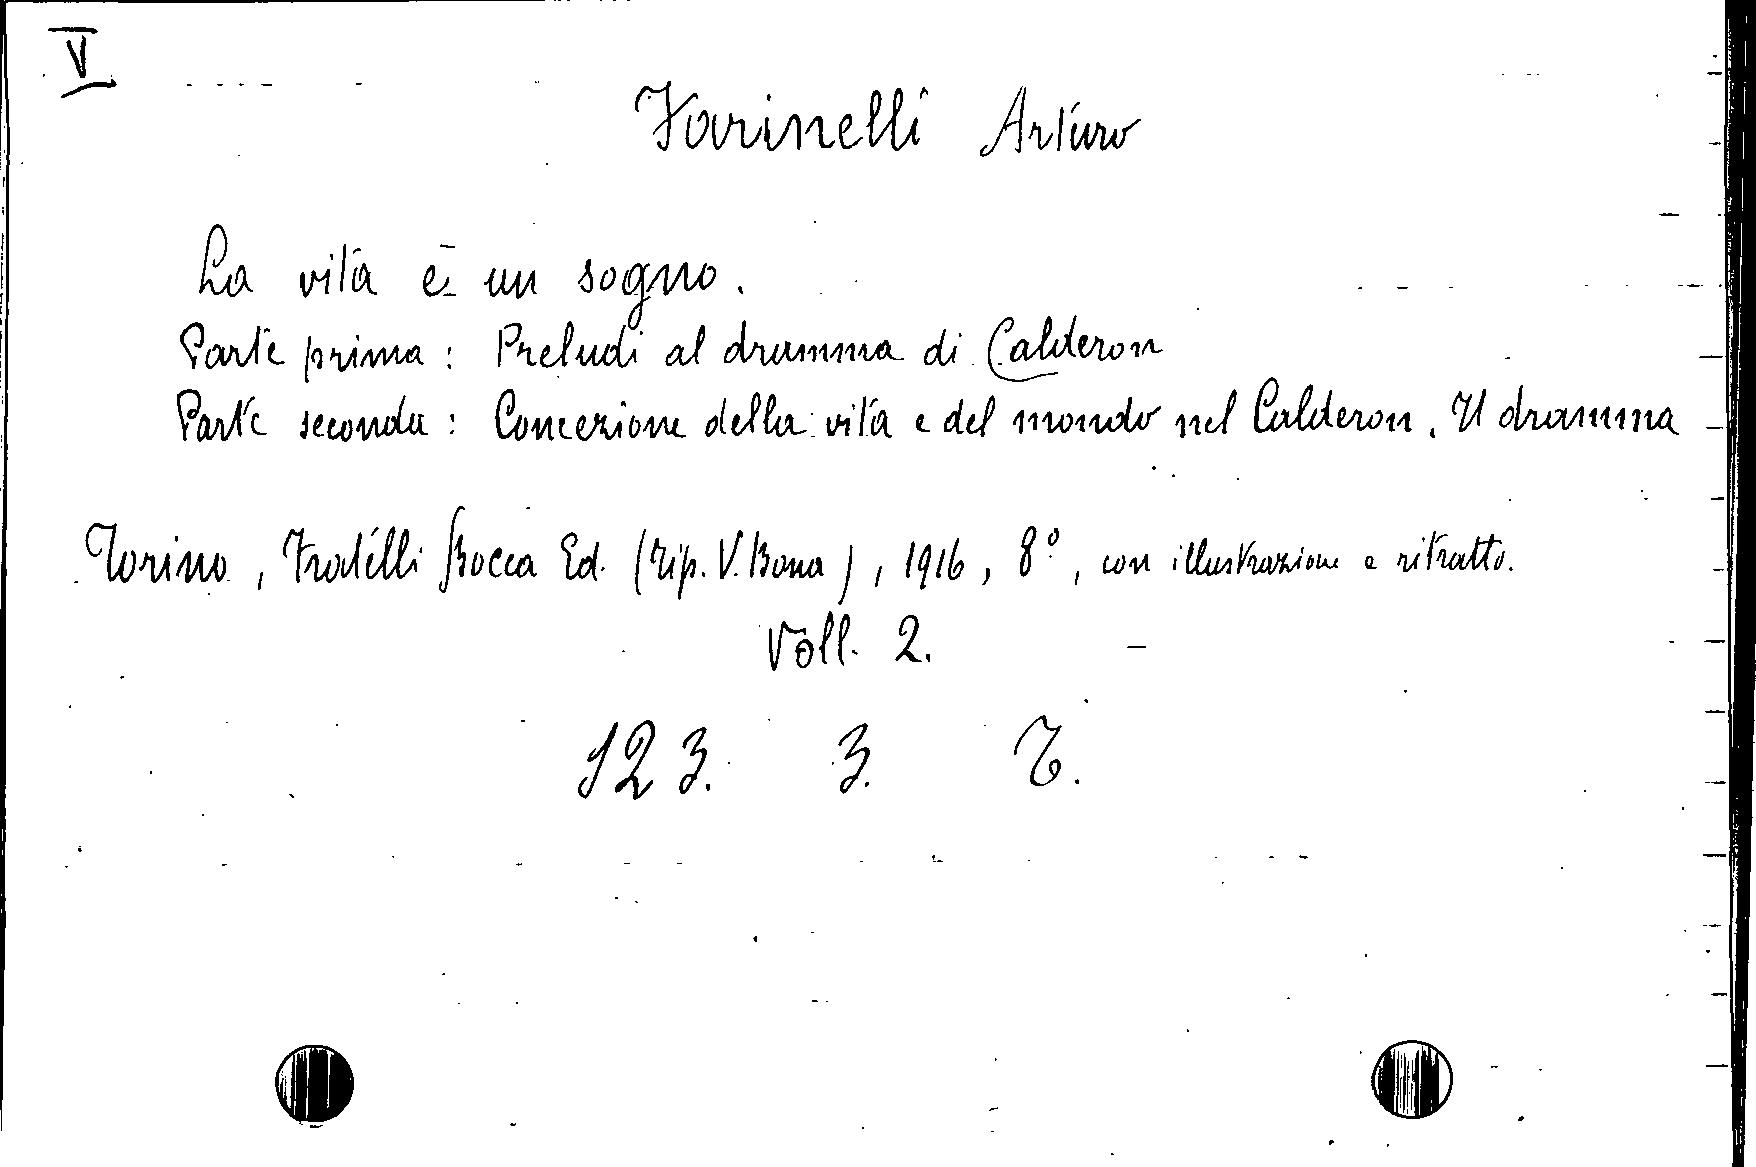 V
Farinelli Arturo
La vita è un sogno.
Parte prima: Preludi al dramma di Calderon
Parte seconda: Concezione della vita e del mondo nel Calderon. Il dramma
Torino, Fratelli Bocca Ed. (Tip. V. Bona), 1916, 8°, con illustrazione e ritratto.
Voll. 2.
123. 3. T.